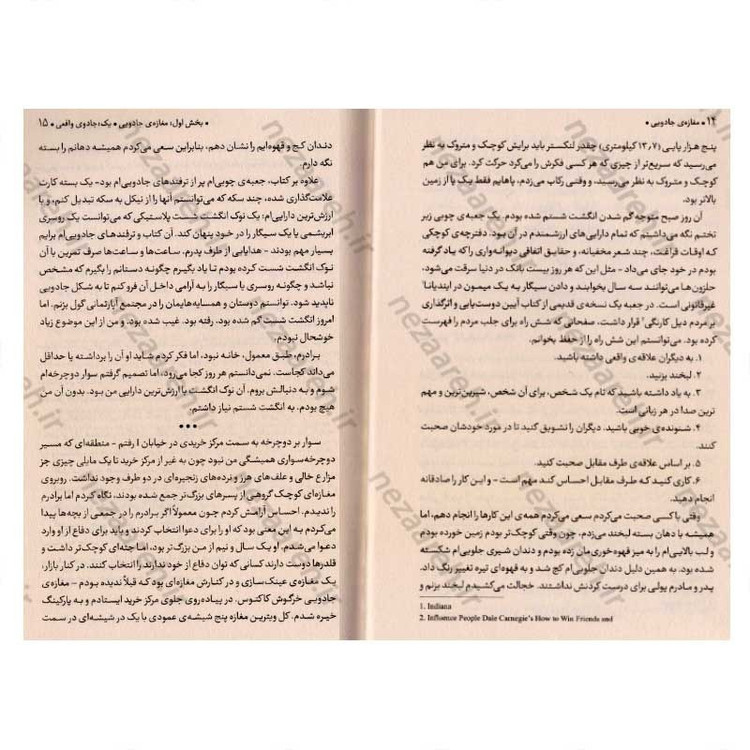 ۱۴ • مغازه‌ی جادویی •
پنج هزار پایی (۱۳٫۷ کیلومتری) چقدر لنکستر باید برایش کوچک و متروک به نظر
می‌رسید که سریع‌تر از چیزی که هر کسی فکرش را می‌کرد حرکت کرد. برای من هم
کوچک و متروک به نظر می‌رسید، و وقتی رکاب می‌زدم، پاهایم فقط یک پا از زمین
بالاتر بود.
آن روز صبح متوجه گم شدن انگشت شستم شده بودم. یک جعبه‌ی چوبی زیر
تختم نگه می‌داشتم که تمام دارایی‌های ارزشمندم در آن بود. دفترچه‌ی کوچکی
که اوقات فراغت، چند شعر مخفیانه، و حقایق اتفاقی دیوانه‌واری را که یاد گرفته
بودم در خود جای می‌داد - مثل این که هر روز بیست بانک در دنیا سرقت می‌شود،
حلزون‌ها می‌توانند سه سال بخوابند و دادن سیگار به یک میمون در ایندیانا¹
غیرقانونی است. در جعبه یک نسخه‌ی قدیمی از کتاب آیین دوست‌یابی و اثرگذاری
بر مردم دیل کارنگی² قرار داشت، صفحاتی که شش راه برای جلب مردم را فهرست
کرده بود. می‌توانستم این شش راه را از حفظ بخوانم.
۱. به دیگران علاقه‌ی واقعی داشته باشید.
۲. لبخند بزنید.
۳. به یاد داشته باشید که نام یک شخص، برای آن شخص، شیرین‌ترین و مهم
ترین صدا در هر زبانی است.
۴. شنونده‌ی خوبی باشید. دیگران را تشویق کنید تا در مورد خودشان صحبت
کنند.
۵. بر اساس علاقه‌ی طرف مقابل صحبت کنید.
۶. کاری کنید که طرف مقابل احساس کند مهم است - و این کار را صادقانه
انجام دهید.
وقتی با کسی صحبت می‌کردم سعی می‌کردم همه‌ی این کارها را انجام دهم، اما
همیشه با دهان بسته لبخند می‌زدم، چون وقتی کوچک‌تر بودم زمین خورده بودم
و لب بالایی‌ام را به میز قهوه‌خوری‌مان زده بودم و دندان شیری جلویی‌ام شکسته
شده بود. به همین دلیل دندان جلویی‌ام کج شد و به قهوه‌ای تیره تغییر رنگ داد.
پدر و مادرم پولی برای درست کردنش نداشتند. خجالت می‌کشیدم لبخند بزنم و
1. Indiana
2. Influence People Dale Carnegie's How to Win Friends and
• بخش اول: مغازه‌ی جادویی • یک: جادوی واقعی • ۱۵
دندان کج و قهوه‌ایم را نشان دهم، بنابراین سعی می‌کردم همیشه دهانم را بسته
نگه دارم.
علاوه بر کتاب، جعبه‌ی چوبی‌ام پر از ترفندهای جادویی‌ام بود- یک بسته کارت
علامت‌گذاری شده، چند سکه که می‌توانستم آنها را از نیکل به سکه تبدیل کنم، و با
ارزش‌ترین دارایی‌ام: یک نوک انگشت شست پلاستیکی که می‌توانست یک روسری
ابریشمی یا یک سیگار را در خود پنهان کند. آن کتاب و ترفندهای جادویی‌ام برایم
بسیار مهم بودند - هدایایی از طرف پدرم. ساعت‌ها و ساعت‌ها صرف تمرین با آن
نوک انگشت شست کرده بودم تا یاد بگیرم چگونه دستانم را بگیرم که مشخص
نباشد و چگونه روسری یا سیگار را به آرامی داخل آن فرو کنم تا به شکل جادویی
ناپدید شود. توانستم دوستان و همسایه‌هایمان را در مجتمع آپارتمانی گول بزنم. اما
امروز انگشت شست گم شده بود. رفته بود. غیب شده بود. و من از این موضوع زیاد
خوشحال نبودم.
برادرم، طبق معمول، خانه نبود، اما فکر کردم شاید او آن را برداشته یا حداقل
می‌داند کجاست. نمی‌دانستم هر روز کجا می‌رود، اما تصمیم گرفتم سوار دوچرخه‌ام
شوم و به دنبالش بروم. آن نوک انگشت با ارزش‌ترین دارایی من بود. بدون آن من
هیچ بودم. به انگشت شستم نیاز داشتم.
•••
سوار بر دوچرخه به سمت مرکز خریدی در خیابان I رفتم - منطقه‌ای که مسیر
دوچرخه‌سواری همیشگی من نبود چون به غیر از مرکز خرید تا یک مایلی چیزی جز
مزارع خالی و علف‌های هرز و نرده‌های زنجیره‌ای در دو طرف وجود نداشت. روبروی
مغازه‌ای کوچک گروهی از پسرهای بزرگ‌تر جمع شده بودند، نگاه کردم اما برادرم
را ندیدم. احساس آرامش کردم چون معمولاً اگر برادرم را در جمعی از بچه‌ها پیدا
می‌کردم به این معنی بود که او را برای دعوا انتخاب کردند و باید برای دفاع از او وارد
دعوا می‌شدم. او یک سال و نیم از من بزرگ‌تر بود، اما جثه‌ای کوچک‌تر داشت و
قلدرها دوست دارند کسانی که توان دفاع از خود ندارند را انتخاب کنند. در کنار بازار،
یک مغازه‌ی عینک‌سازی و در کنارش مغازه‌ای بود که قبلاً ندیده بودم - مغازه‌ی
جادویی خرگوش کاکتوس. در پیاده‌روی جلوی مرکز خرید ایستادم و به پارکینگ
خیره شدم. کل ویترین مغازه پنج شیشه‌ی عمودی با یک در شیشه‌ای در سمت
nezaareh.ir